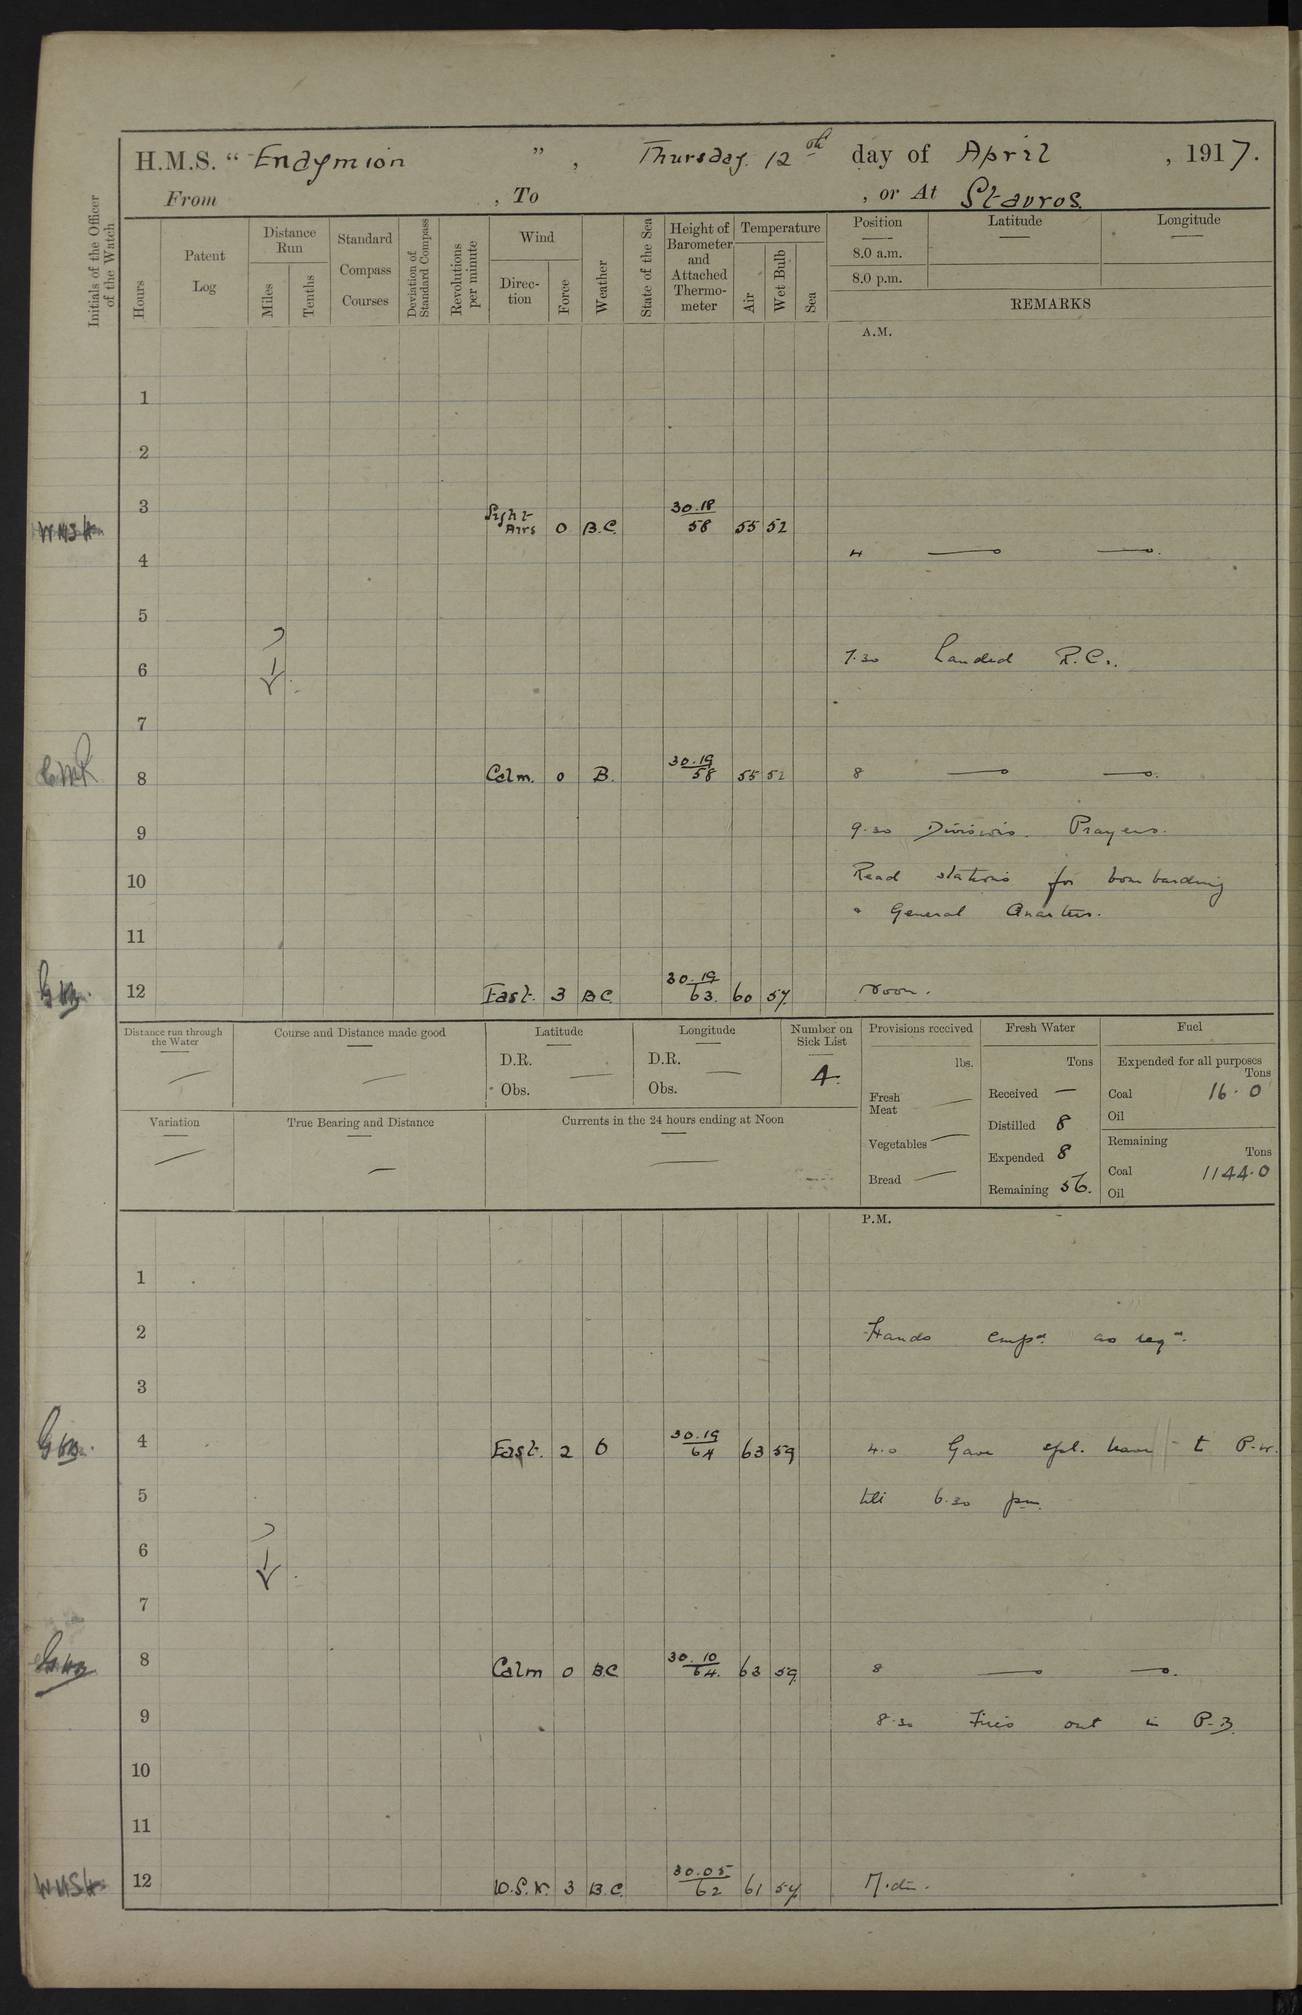 H.M.S. “ Endymion ” , Thursday. 12th day of April , 1917.
From , To , or At Stavros.
Initials of the Officer of the Watch
Hours
Patent Log
Distance Run
Miles
Tenths
Standard Compass Courses
Deviation of Standard Compass
Revolutions per minute
Wind
Direction
Force
Weather
State of the Sea
Height of Barometer and Attached Thermometer
Temperature
Air
Wet Bulb
Sea
Position Latitude Longitude
8.0 a.m.
8.0 p.m.
REMARKS
A.M.
1
2
3
Light Airs 0 B.C. 30.18 58 55 52
4
4
5
7.30 Landed R.C..
6
7
8 Calm. 0 B. 30.19 58 55 52 8
9 9.30 Divisions. Prayers.
10 Read stations for bombarding
" General Quarters.
11
12 East. 3 BC 30.19 63. 60 57 Noon.
Distance run through the Water
Course and Distance made good
Latitude
D.R.
Obs.
Longitude
D.R.
Obs.
Number on Sick List
4.
Provisions received
lbs.
Fresh Meat —
Vegetables —
Bread —
Fresh Water
Tons
Received —
Distilled 8
Expended 8
Remaining 56.
Fuel
Expended for all purposes
Tons
Coal 16.0
Oil
Remaining
Tons
Coal 1144.0
Oil
Variation
True Bearing and Distance
Currents in the 24 hours ending at Noon
P.M.
1
2 Hands empd. as reqd.
3
4 East. 2 b 30.19 64 63 59 4.0 Gave spl. leave to P.W.
5 till 6.30 pm.
6
7
8 Calm 0 BC 30.10 64. 63 59 8
9 8.30 Fires out in P.B.
10
11
12 W.S.W. 3 B.C. 30.05 62 61 57 Midn.